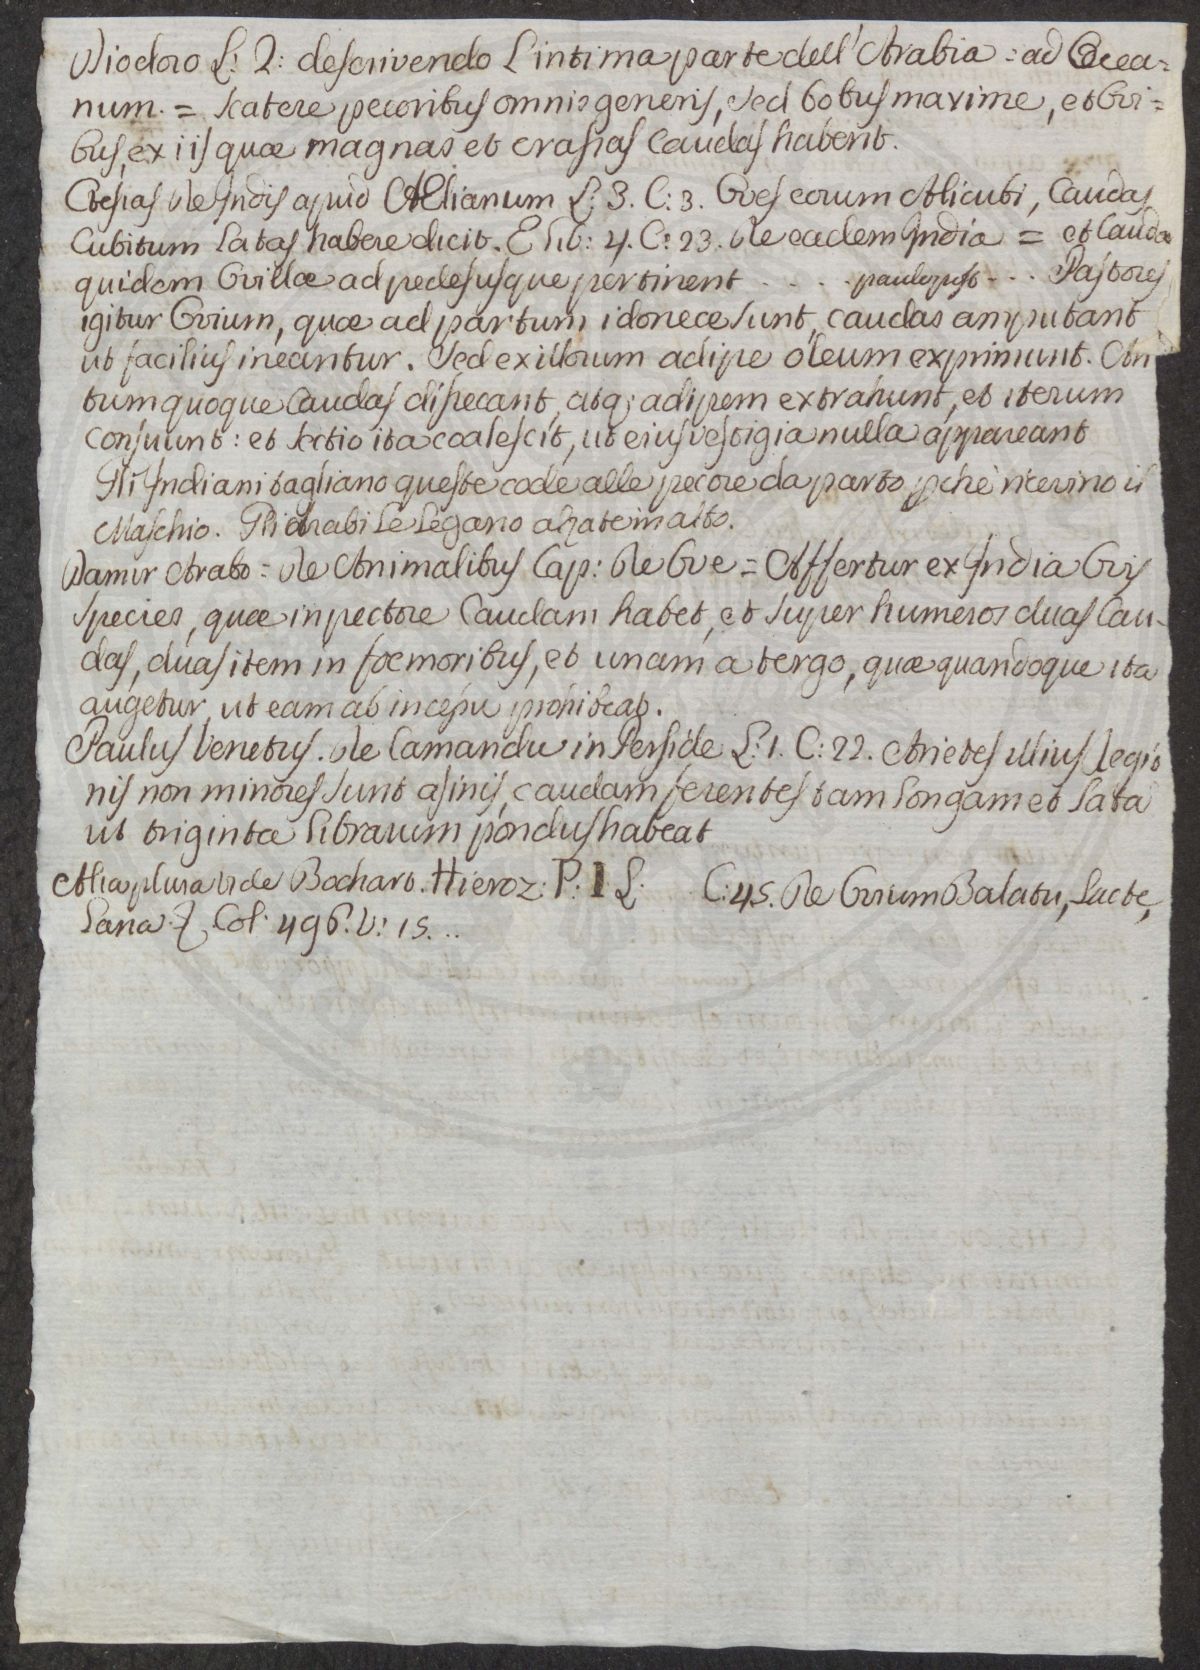 Diodoro L: 2: descrivendo l'intima parte dell'Arabia = ad Ocea=
num. = scatere pecoribus omnis generis, sed bobus maxime, et Ovi=
bus, ex iis quæ magnas et crassas Caudas habent.
Ctesias de Indis apud Ælianum L: 3. C: 3. Oves eorum Alicubi, Caudas
Cubitum latas habere dicit. E lib: 4. C: 23. de eadem India = et Caudæ
quidem Ovillæ ad pedes usque pertinent . . . . paulo post - . . Pastores
igitur Ovium, quæ ad partum idoneæ sunt, caudas amputant
ut facilius ineantur. Sed ex illorum adipe oleum exprimunt. Arie
tum quoque Caudas dissecant, atq; adipem extrahunt, et iterum
consuunt: et sectio ita coalescit, ut eius vestigia nulla appareant
Gli Indiani tagliano queste code alle pecore da parto, pchè ricevino il
Maschio. Gli Arabi le legano alzate in alto.
Damir Arabo = de Animalibus Cap: de Ove = Affertur ex India Ovis
species, quæ in pectore Caudam habet, et super humeros duas Cau-
das, duas item in foemoribus, et unam a tergo, quæ quandoque ita
augetur, ut eam ab incessu prohibeat.
Paulus Venetus. de Camandu in Perside L: 1. C: 22. Arietes illius Regio
nis non minores sunt asinis, caudam ferentes tam longam et lata
ut triginta librarum pondus habeat
Alia plura vide Bochart. Hieroz: P: I L: C: 45. de Ovium Balatu, Lacte,
Lana &. Col: 496. V: 15. ..